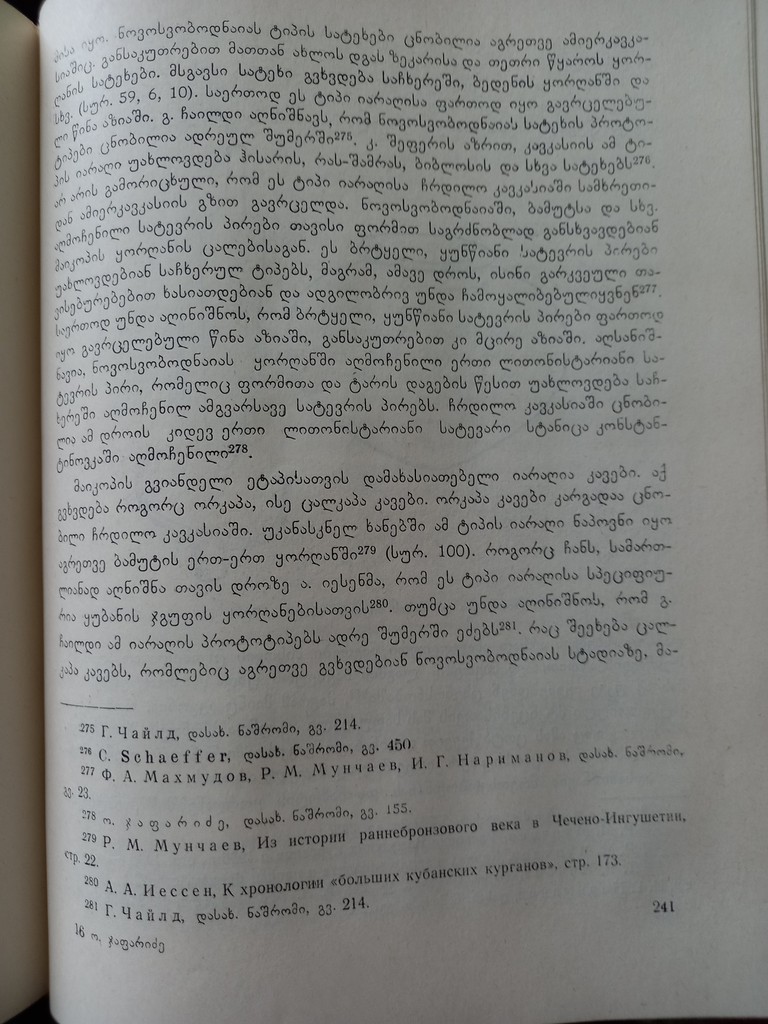 პისა იყო. ნოვოსვობოდნაიას ტიპის სატეხები ცნობილია აგრეთვე ამიერკავკა-
სიაშიც. განსაკუთრებით მათთან ახლოს დგას ზეკარისა და თეთრი წყაროს ყორ-
ღანის სატეხები. მსგავსი სატეხი გვხვდება საჩხერეში, ბედენის ყორღანში და
სხვ. (სურ. 59, 6, 10). საერთოდ ეს ტიპი იარაღისა ფართოდ იყო გავრცელებუ-
ლი წინა აზიაში. გ. ჩაილდი აღნიშნავს, რომ ნოვოსვობოდნაიას სატეხის პროტო-
ტიპები ცნობილია ადრეულ შუმერში²⁷⁵. კ. შეფერის აზრით, კავკასიის ამ ტი-
პის იარაღი უახლოვდება ჰისარის, რას-შამრას, ბიბლოსის და სხვა სატეხებს²⁷⁶.
არ არის გამორიცხული, რომ ეს ტიპი იარაღისა ჩრდილო კავკასიაში სამხრეთი-
დან ამიერკავკასიის გზით გავრცელდა. ნოვოსვობოდნაიაში, ბამუტსა და სხვ.
აღმოჩენილი სატევრის პირები თავისი ფორმით საგრძნობლად განსხვავდებიან
მაიკოპის ყორღანის ცალებისაგან. ეს ბრტყელი, ყუნწიანი სატევრის პირები
უახლოვდებიან საჩხერულ ტიპებს, მაგრამ, ამავე დროს, ისინი გარკვეული თა-
ვისებურებებით ხასიათდებიან და ადგილობრივ უნდა ჩამოყალიბებულიყვნენ²⁷⁷.
საერთოდ უნდა აღინიშნოს, რომ ბრტყელი, ყუნწიანი სატევრის პირები ფართოდ
იყო გავრცელებული წინა აზიაში, განსაკუთრებით კი მცირე აზიაში. აღსანიშ-
ნავია, ნოვოსვობოდნაიას ყორღანში აღმოჩენილი ერთი ლითონისტარიანი სა-
ტევრის პირი, რომელიც ფორმითა და ტარის დაგების წესით უახლოვდება საჩ-
ხერეში აღმოჩენილ ამგვარსავე სატევრის პირებს. ჩრდილო კავკასიაში ცნობი-
ლია ამ დროის კიდევ ერთი ლითონისტარიანი სატევარი სტანიცა კონსტან-
ტინოვკაში აღმოჩენილი²⁷⁸.
მაიკოპის გვიანდელი ეტაპისათვის დამახასიათებელი იარაღია კავები. აქ
გვხვდება როგორც ორკაპა, ისე ცალკაპა კავები. ორკაპა კავები კარგადაა ცნო-
ბილი ჩრდილო კავკასიაში. უკანასკნელ ხანებში ამ ტიპის იარაღი ნაპოვნი იყო
აგრეთვე ბამუტის ერთ-ერთ ყორღანში²⁷⁹ (სურ. 100). როგორც ჩანს, სამართ-
ლიანად აღნიშნა თავის დროზე ა. იესენმა, რომ ეს ტიპი იარაღისა სპეციფიუ-
რია ყუბანის ჯგუფის ყორღანებისათვის²⁸⁰. თუმცა უნდა აღინიშნოს, რომ გ.
ჩაილდი ამ იარაღის პროტოტიპებს ადრე შუმერში ეძებს²⁸¹. რაც შეეხება ცალ-
კაპა კავებს, რომლებიც აგრეთვე გვხვდებიან ნოვოსვობოდნაიას სტადიაზე, მა-
²⁷⁵ Г. Чайлд, დასახ. ნაშრომი, გვ. 214.
²⁷⁶ C. Schaeffer, დასახ. ნაშრომი, გვ. 450
²⁷⁷ Ф. А. Махмудов, Р. М. Мунчаев, И. Г. Нариманов, დასახ. ნაშრომი,
გვ. 23.
²⁷⁸ ო. ჯაფარიძე, დასახ. ნაშრომი, გვ. 155.
²⁷⁹ Р. М. Мунчаев, Из истории раннебронзового века в Чечено-Ингушетии,
стр. 22.
²⁸⁰ А. А. Иессен, К хронологии «больших кубанских курганов», стр. 173.
²⁸¹ Г. Чайлд, დასახ. ნაშრომი, გვ. 214.
16 ო. ჯაფარიძე
241